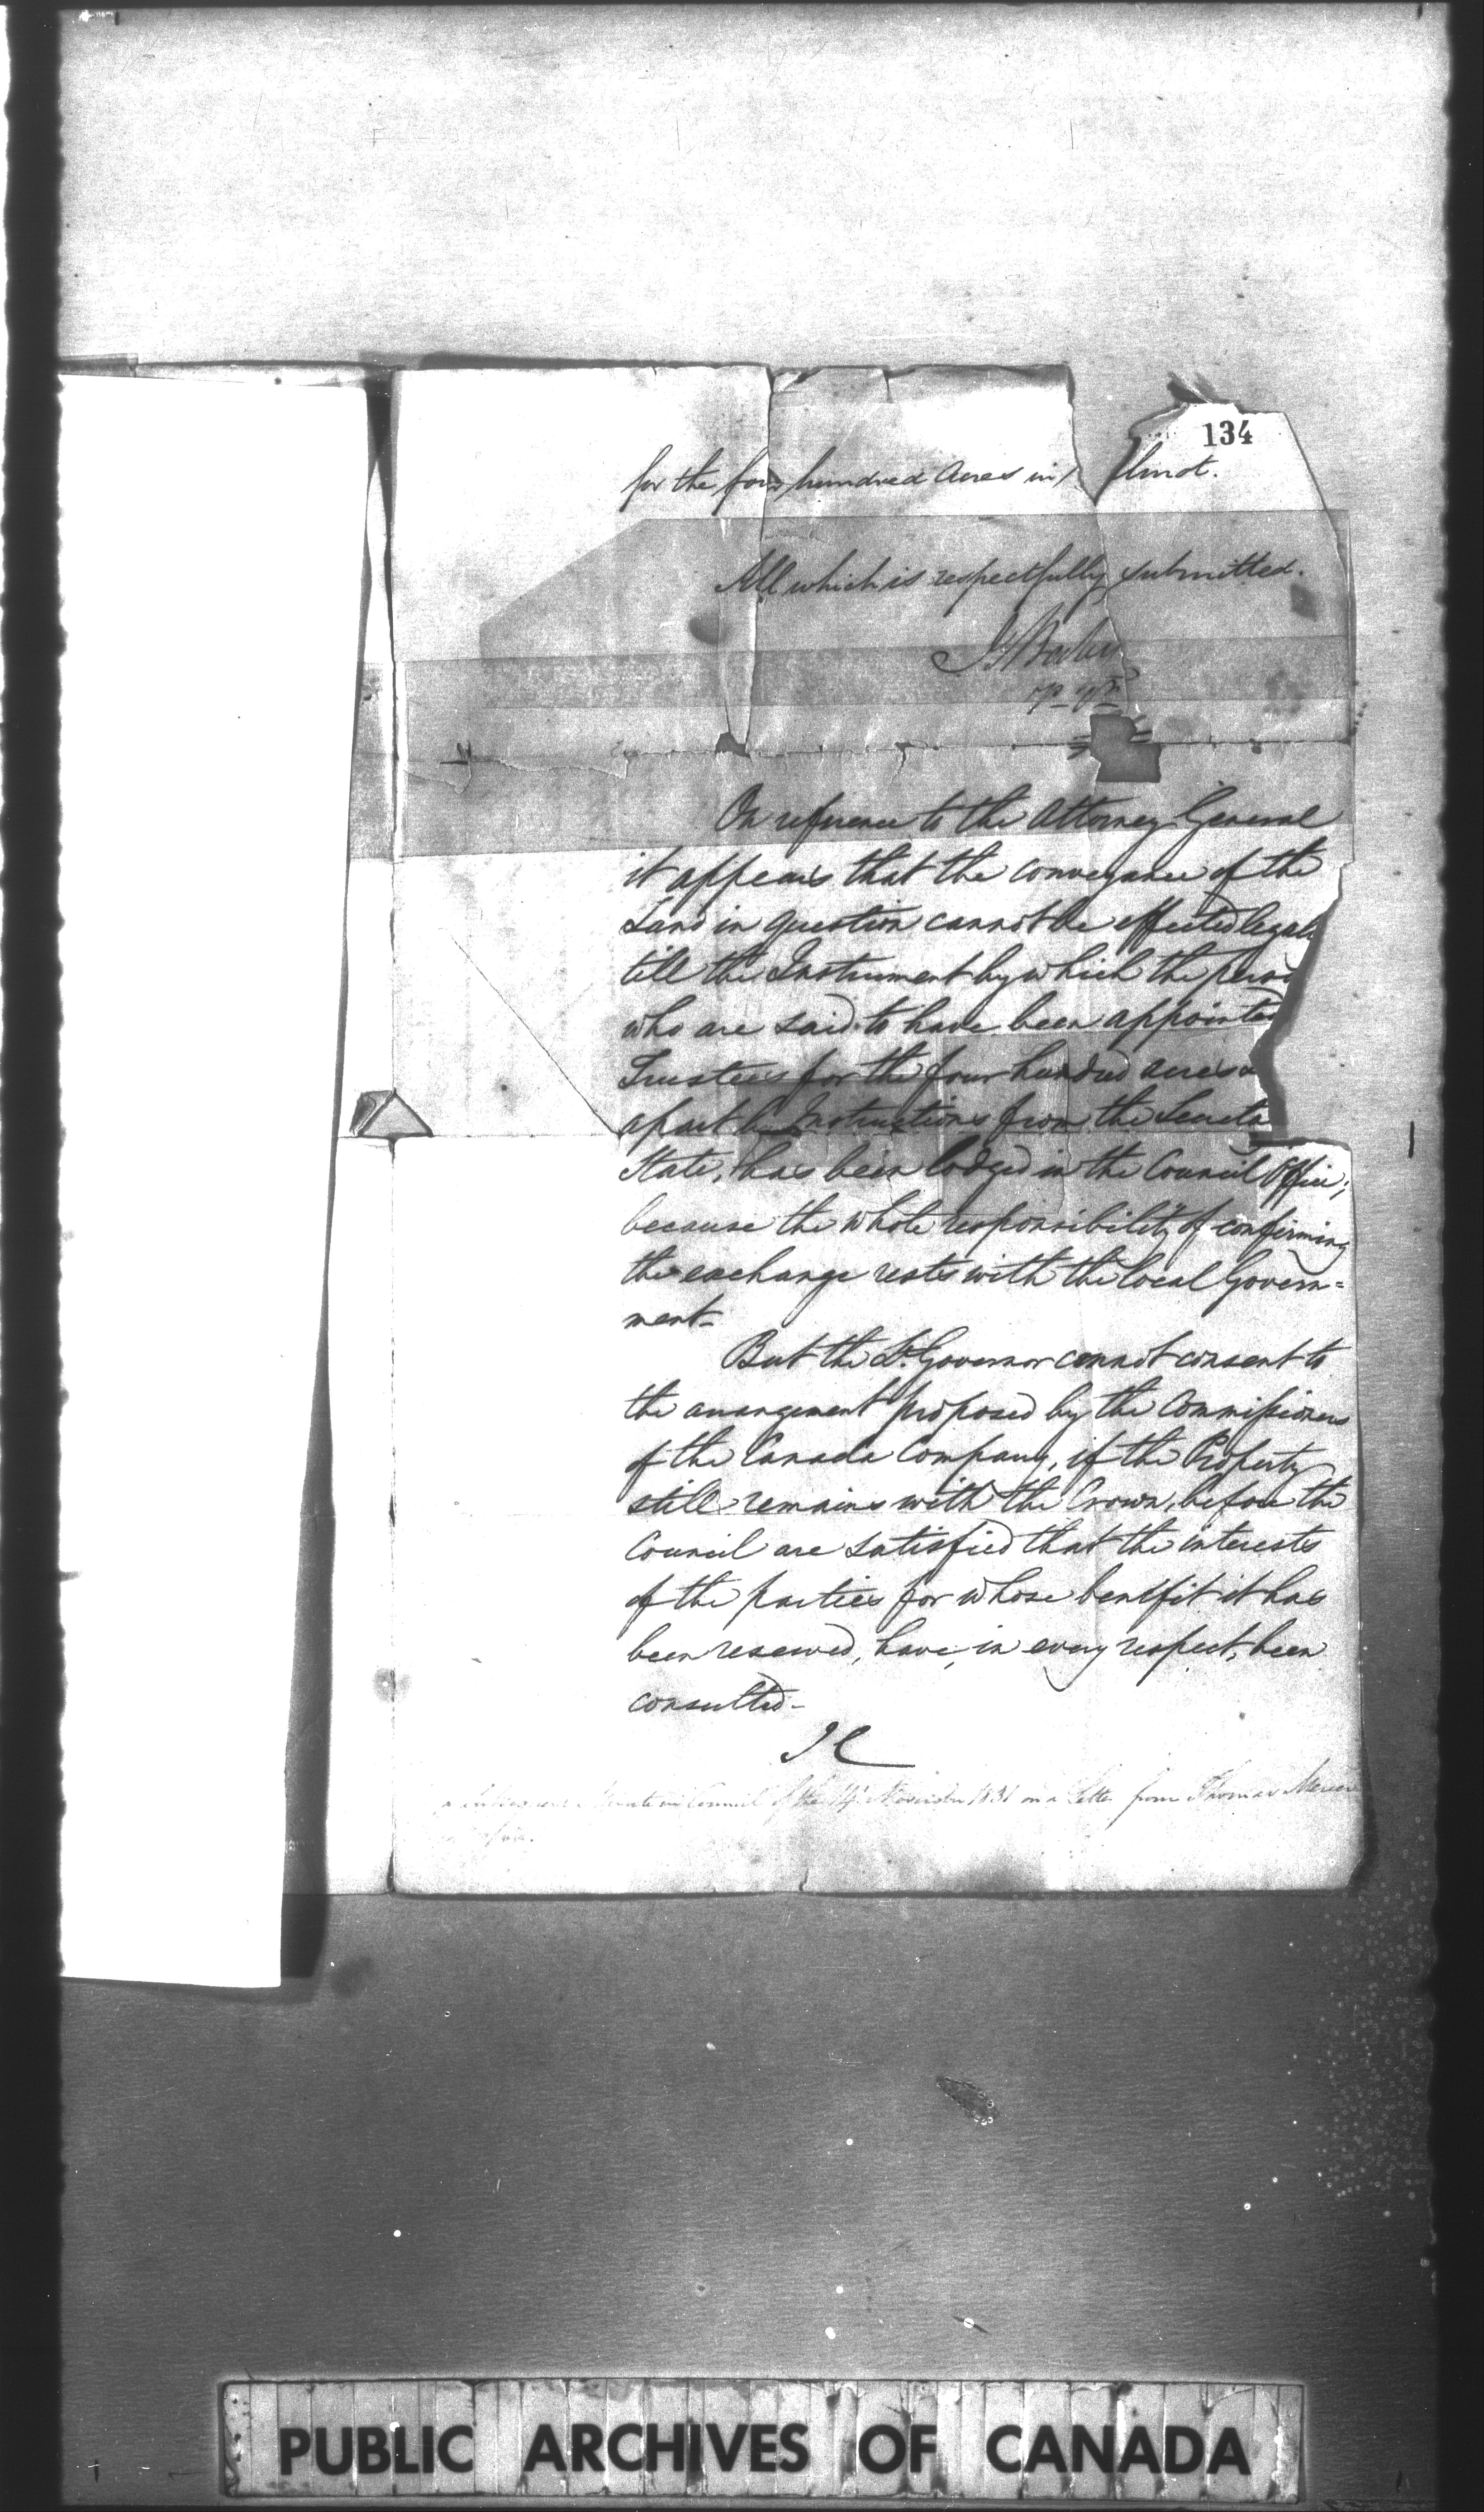 134
for the four hundred Acres in lmot.
All which is respectfully submitted.
On reference to the Attorney General
it appears that the conveyance of the
Land in question cannot be effected legal
till the Instrument by which the perso
who are said to have been appointed
Trustees for the four hundred acres
apart by Instructions from the Secreta
State, has been lodged in the Council Office;
because the whole responsibility of confirming
the exchange rests with the local Govern=
ment-
But the Lt. Governor cannot consent to
the arrangement proposed by the Commissioners
of the Canada Company, if the Property
still remains with the Crown, before the
Council are satisfied that the interests
of the parties for whose benefit it has
been reserved, have, in every respect, been
consulted-
JC
Minute in Council of the 14th November 1831 on a Letter from Thomas Mercer
PUBLIC ARCHIVES OF CANADA